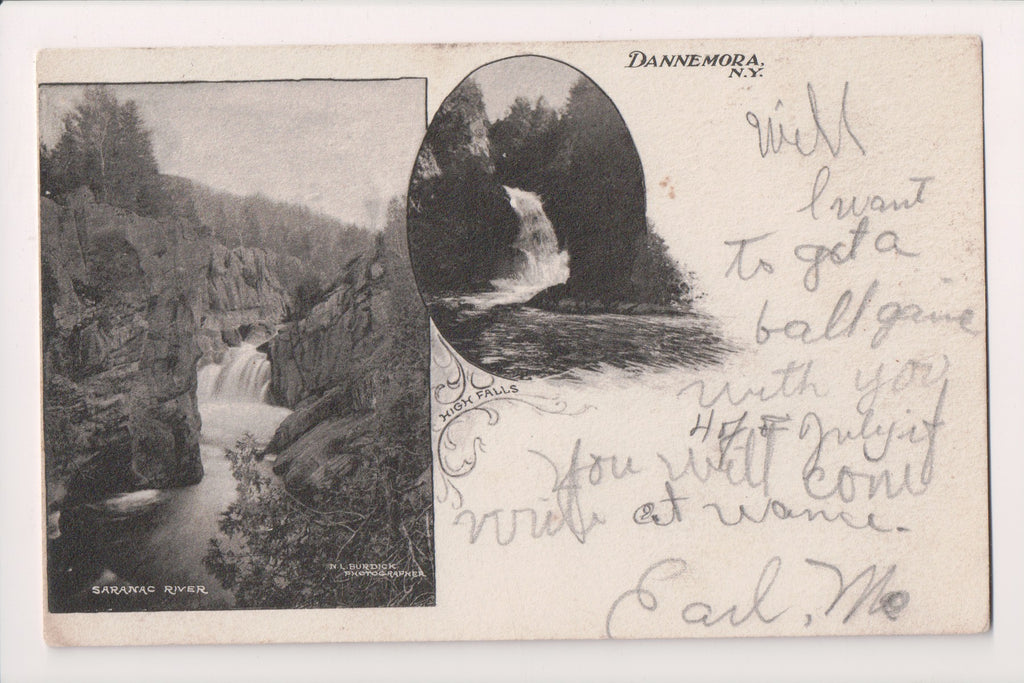 DANNEMORA,
N.Y.
Will
I want
to get a
ball game
with you
4th July if
You will come
write at wance.
Earl, Mc
HIGH FALLS
N. L. BURDICK
PHOTOGRAPHER
SARANAC RIVER